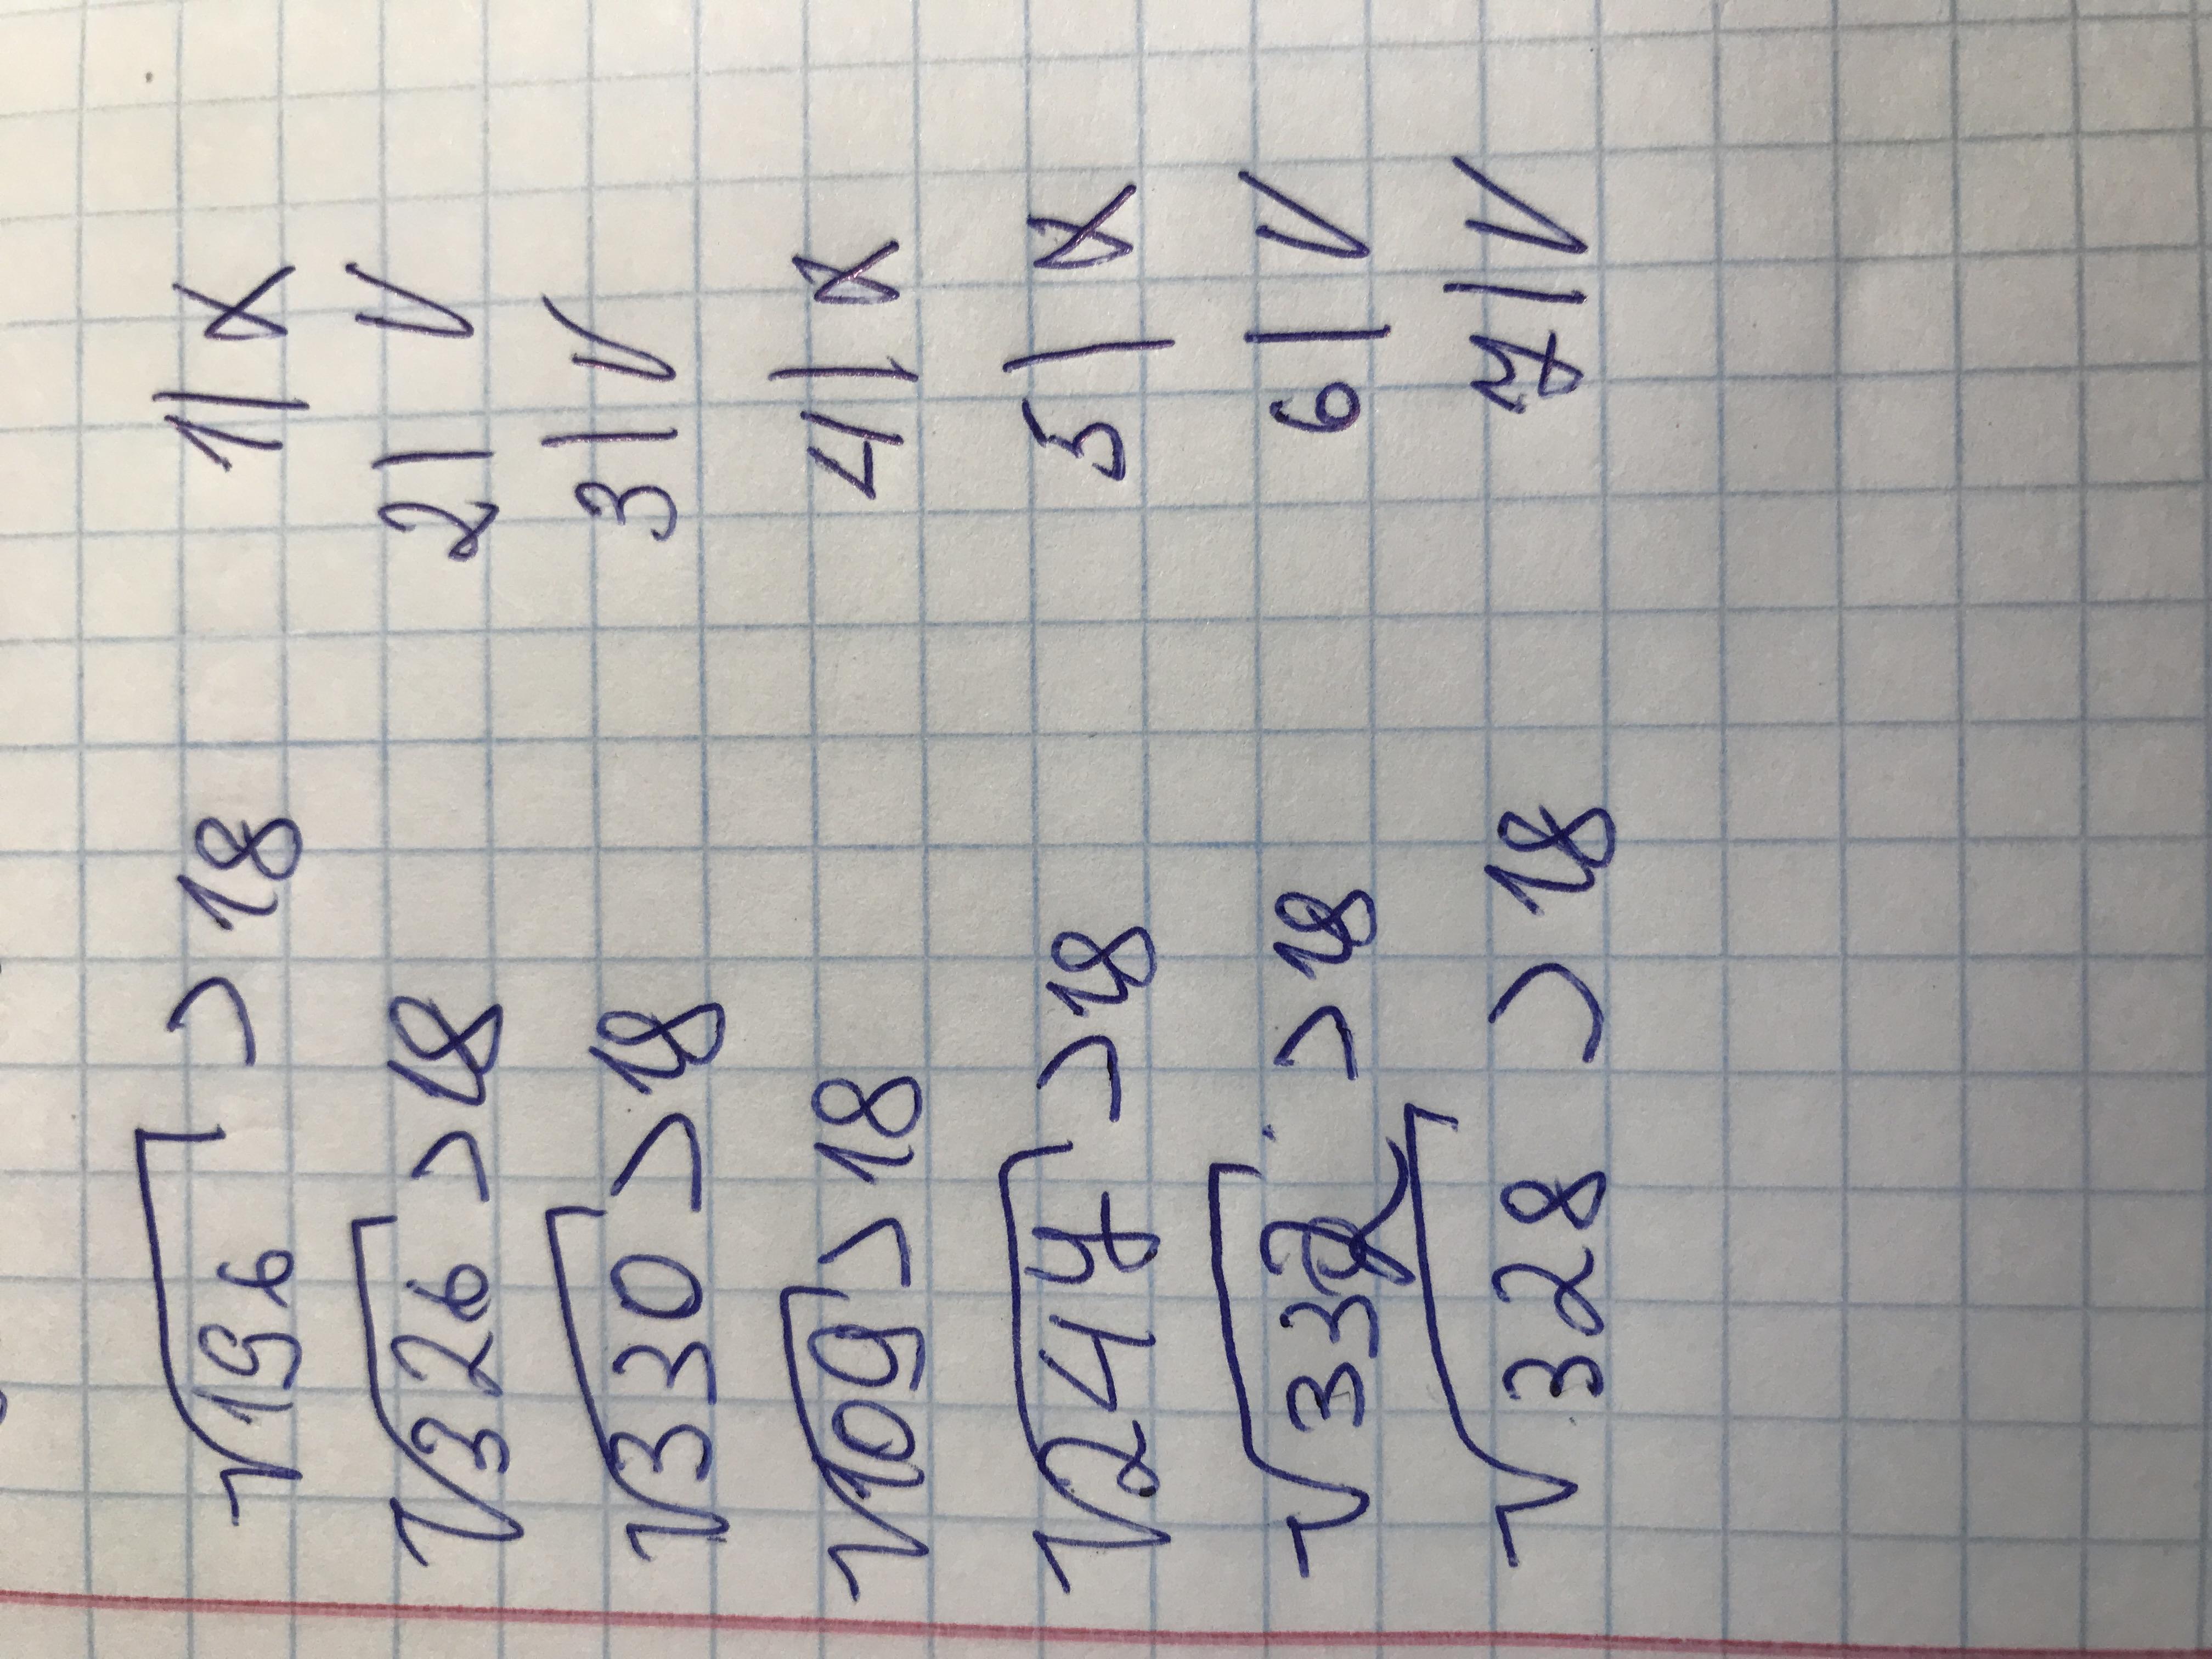 √196 > 18 1| x
√326 > 18 2| v
√330 > 18 3| v
√109 > 18 4| x
√244 > 18 5| x
√332 > 18 6| v
√328 > 18 7| v